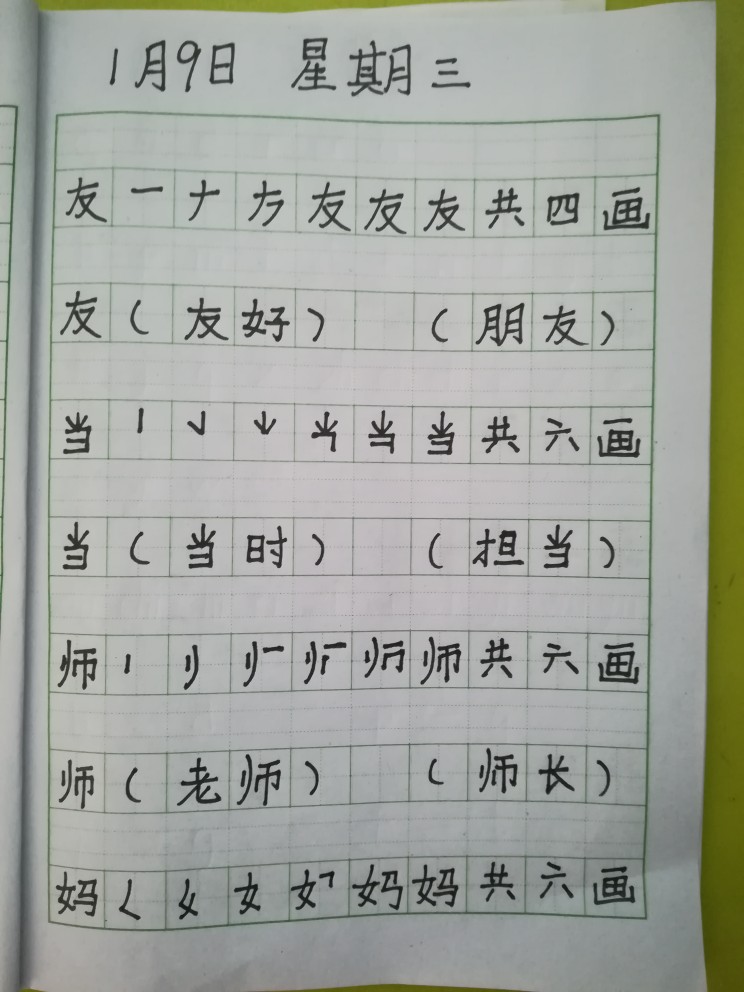 1月9日 星期三
友一ナ方友友友共四画
友(友好) (朋友)
当丨⺌当当当共六画
当(当时) (担当)
师丨师共六画
师(老师) (师长)
妈𡿨女妈妈共六画